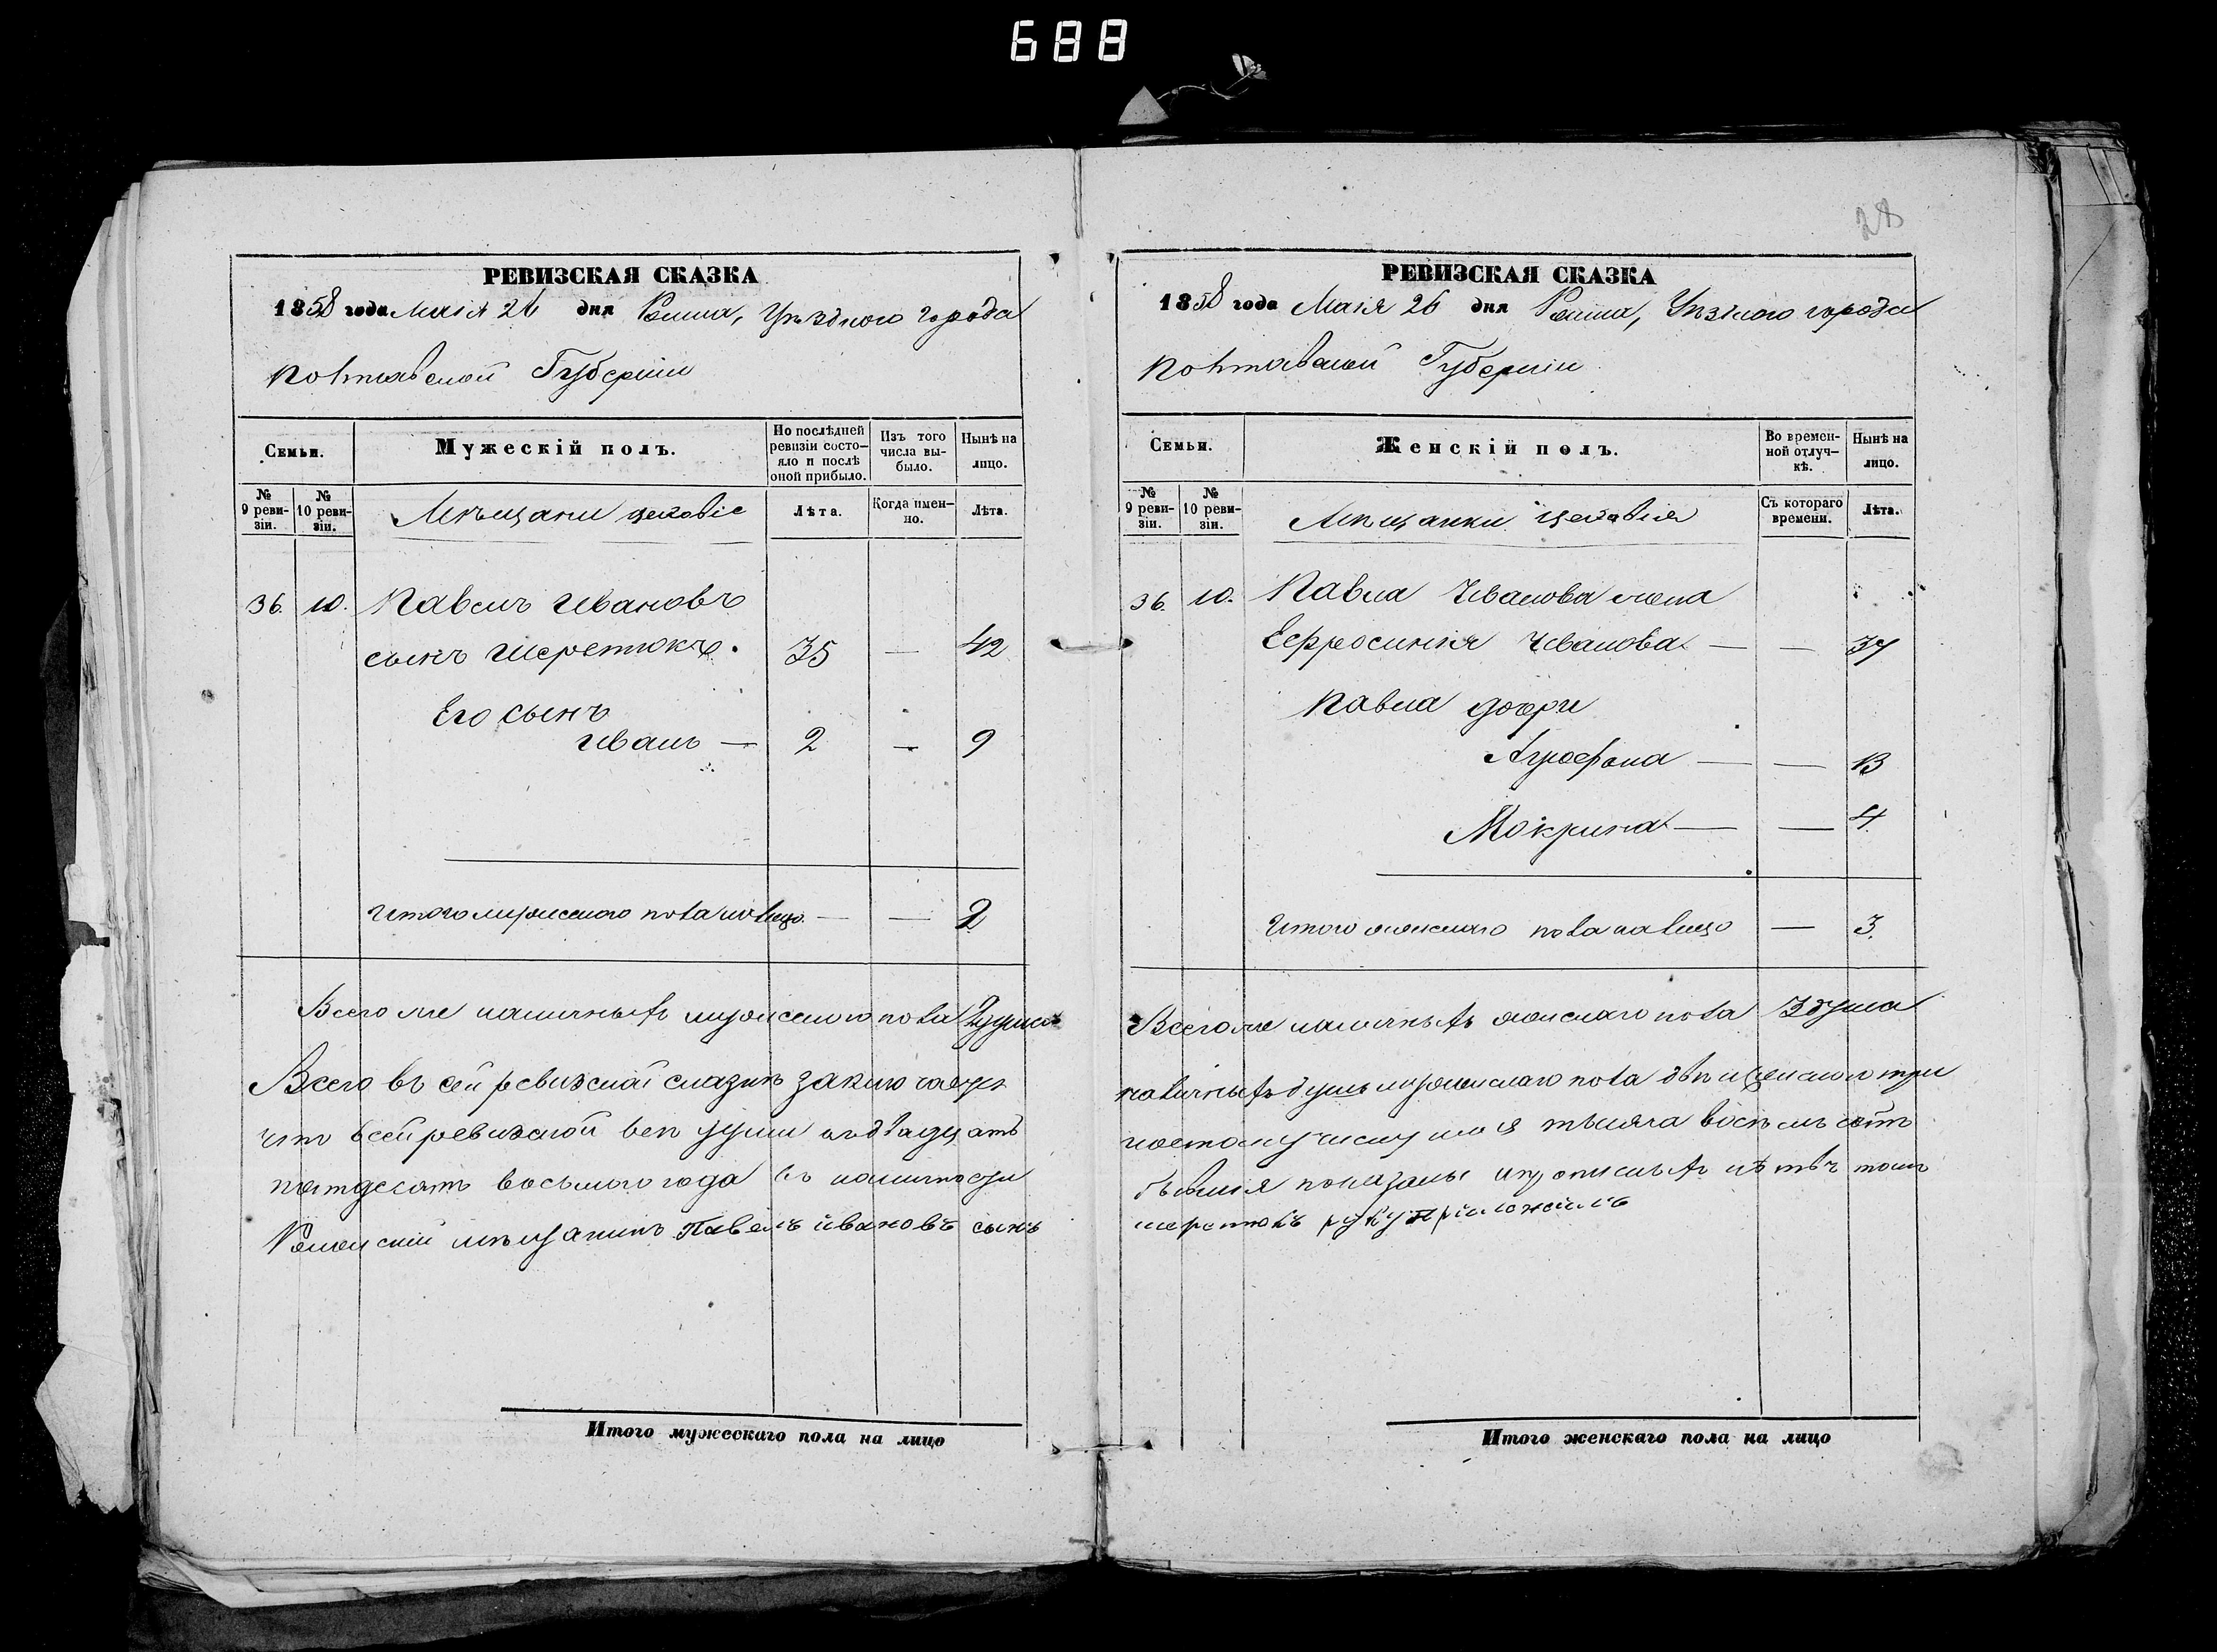 688
28
РЕВИЗСКАЯ СКАЗКА
1858 года Маія 26 дня Ромна, Уѣздного города
Полтавской Губерніи
Семьи.
Мужескій полъ.
По послѣдней ревизіи состояло и послѣ оной прибыло.
Изъ того числа выбыло.
Нынѣ на лицо.
№ 9 ревизіи.
№ 10 ревизіи.
Мѣщани цеховіе
Лѣта.
Когда именно.
Лѣта.
36. 10. Павелъ Ивановъ
сынъ Шеретюкъ. 35 — 42
Его сынъ
Иванъ — 2 — 9
Итого мужеского пола на лицо. — — 2
Всего же наличныхъ мужеского пола 2 души
Всего въ сей ревизской сказкѣ заключается
что
пятдесятъ восьмого года въ наличности
Роменскій мѣщанинъ Павелъ ивановъ сынъ
Итого мужескаго пола на лицо
РЕВИЗСКАЯ СКАЗКА
1858 года Маія 26 дня Ромна, Уѣзного города
Полтавской Губерніи
Семьи.
Женскій полъ.
Во временной отлучкѣ.
Нынѣ на лицо.
№ 9 ревизіи.
№ 10 ревизіи.
Мѣщанки цеховія
Съ котораго времени.
Лѣта.
36. 10. Павла Иванова жена
Ефросинія Иванова — — 37
Павла дочри
Агрофена — — 13
Мокрина — — 4.
Итого женского пола на лицо — 3.
Всего же наличныхъ женскаго пола 3 душа
наличныхъ душъ мужескаго пола двѣ и женского три
тысяча восѣмъ сотъ
показаны
шеретюкъ руку приложилъ
Итого женскаго пола на лицо